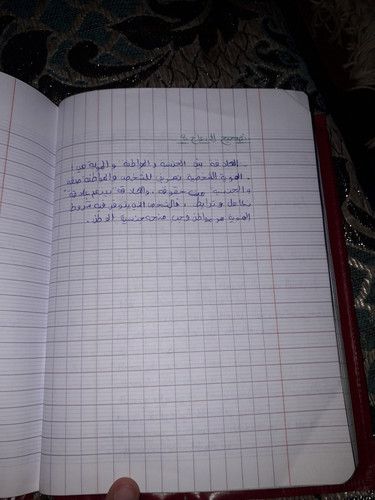 تصحيح السؤال 2
العلاقة بين الجنسية والمواطنة والهوية هي:
الهوية الشخصية تعريف للشخص والمواطنة صفة
والجنسية من حقوقه والعلاقة بينهم علاقة
تكامل وترابط، فالشخص الذي يتوفر فيه شروط
الهوية هو مواطن وجب منحه جنسية الوطن.